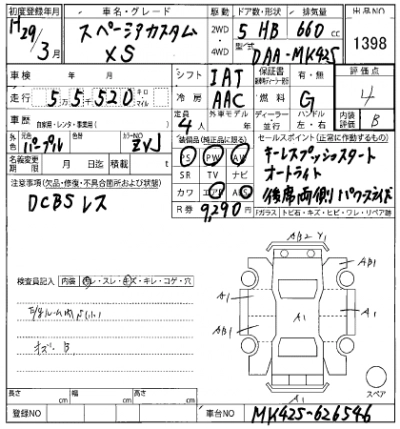 初度登録年月 車名・グレード 駆動 ドア数・形状 排気量 出品NO
H29/3月 スペーシアカスタム XS 2WD 4WD 5 HB 660 cc 1398
型式 DAA-MK42S
車検 年 月 シフト IAT 保証書 有・無 評価点
走行 5 5,520 キロ マイル 冷房 AAC 燃料 G 4
車歴 自家用・レンタ・事業用( ) 定員 4人 外車モデル 年 ディーラー 並行 ハンドル 左・右 内装評価 B
外色 元色 パープル カラーNO ZVJ 装備品(純正品に限る) セールスポイント(正常に作動するもの)
名義変更期限 月 日迄 積載 t PS PW AW キーレスプッシュスタート
注意事項(欠品・修復・不具合箇所および状態) SR TV ナビ オートライト
DCBSレス カワ エアB ABS 後席両側パワースライド
R券 9,290円 Fガラス トビ石・キズ・ヒビ・ワレ・リペア跡
検査員記入 内装 ・スレ・キズ・キレ・コゲ・穴
AB2 Y1
AB1
A1
AB1
A1
A1
A1
スペア
長さ cm 幅 cm 高さ cm
登録NO 車台NO MK42S-626546